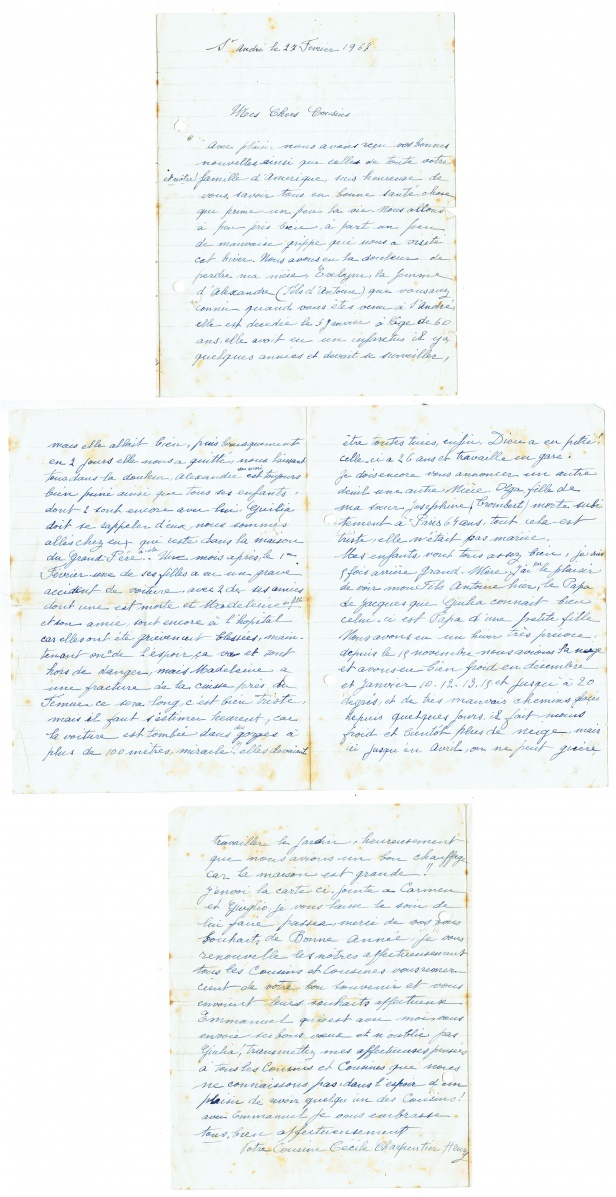 St André le 27 Fevrier 1967
Mes Chers Cousins
Avec plaisir nous avons reçu vos bonnes
nouvelles ainsi que celles de toute votre
et notre famille d'Amerique, suis heureuse de
vous savoir tous en bonne santé, chose
que prime un peu la vie. Nous allons
à peu près bien à part un peu
de mauvaise grippe qui nous a visité
cet hiver. Nous avons eu la douleur de
perdre ma nièce, Evelyne, la femme
d'Alexandre (Fils d'Antoine) que vous avez
connu quand vous êtes venu à St André
elle est decedée le 3 Janvier à l'âge de 60
ans, elle avait eu un infarctus il y a
quelques années et devait se surveiller,
mais elle allait bien, puis brusquement
en 2 jours elle nous a quitté, nous laissant
tous dans la douleur, Alexandre est toujours
bien peiné ainsi que tous ses enfants,
dont 2 sont encore avec lui Giulia
doit se rappeler d'eux, nous sommes
allés chez eux, qui reste dans la maison
du Grand Père. Une mois après, le 1er
Février une de ses filles a eu un grave
accident de voiture avec 2 de ses amies
dont une est morte et Madeleine
et son amie, sont encore à l'hopital
car elles ont été grièvement blessées, main-
tenant on a de l'espoir, ça va et sont
hors de danger, mais Madeleine a
une fracture à la cuisse près du
Fémur, ce sera long, c'est bien triste,
mais il faut s'estimer heureux, car
la voiture est tombée dans les gorges à
plus de 100 mètres, miracle! elles devraient
être toutes tuées, enfin, Dieu a eu pitié!
celle-ci a 26 ans et travaille en gare.
Je dois encore vous annoncer un autre
deuil une autre Nièce Olga fille de
ma sœur Josephine (Trombert) morte subi-
tement à Paris 64 ans, tout cela est
triste, elle n'était pas mariée.
Mes enfants vont tres assez bien, je suis
5 fois arrière Grand-Mère, j'ai eu le plaisir
de voir mon Fils Antoine hier, le Papa
de Jacques que Giulia connait bien
celui-ci est Papa d'une petite fille
Nous avons eu un hiver très precoce
depuis le 15 novembre nous avions la neige
et avons eu bien froid en decembre
et Janvier 10-12-13, 15 et jusqu'à 20
degrés, et de très mauvais chemins glacés
depuis quelques jours, il fait moins
froid et bientôt plus de neige mais
ici jusqu'en Avril, on ne peut guère
travailler le jardin, heureusement
que nous avons un bon chauffage
car la maison est grande!!
J'envoi la carte ci jointe a Carmen
et Giuglio, je vous laisse le soin de
lui faire passer, merci de vos
souhaits de Bonne Année je vous
renouvelle les nôtres affectueusement
tous les Cousins et Cousines vous remer-
cient de votre bon souvenir et vous
envoient leurs souhaits affectueux
Emmanuel qui est avec moi vous
envoie ses bons vœux et n'oublie pas
Giulia! transmettez mes affectueuses pensées
à tous les Cousins et Cousines que nous
ne connaissons pas, dans l'espoir d'un
plaisir de revoir quelqu'un des Cousins!
avec Emmanuel je vous embrasse
tous, bien affectueusement
Votre Cousine Cécile Charpentier Henry